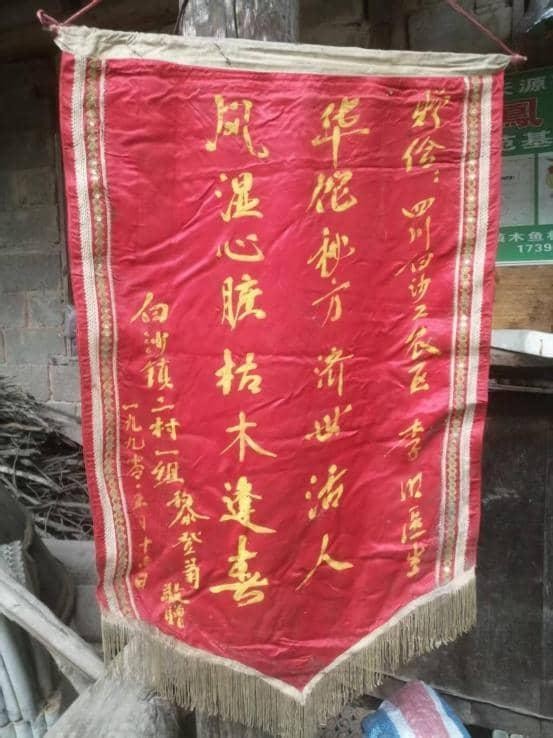 赠给：四川白沙工农区 李明医生
华佗秘方济世活人
风湿心脏枯木逢春
白沙镇二村一组黎登菊 敬赠
一九九零·五月十日
源
凤
范基
木鱼村
1739